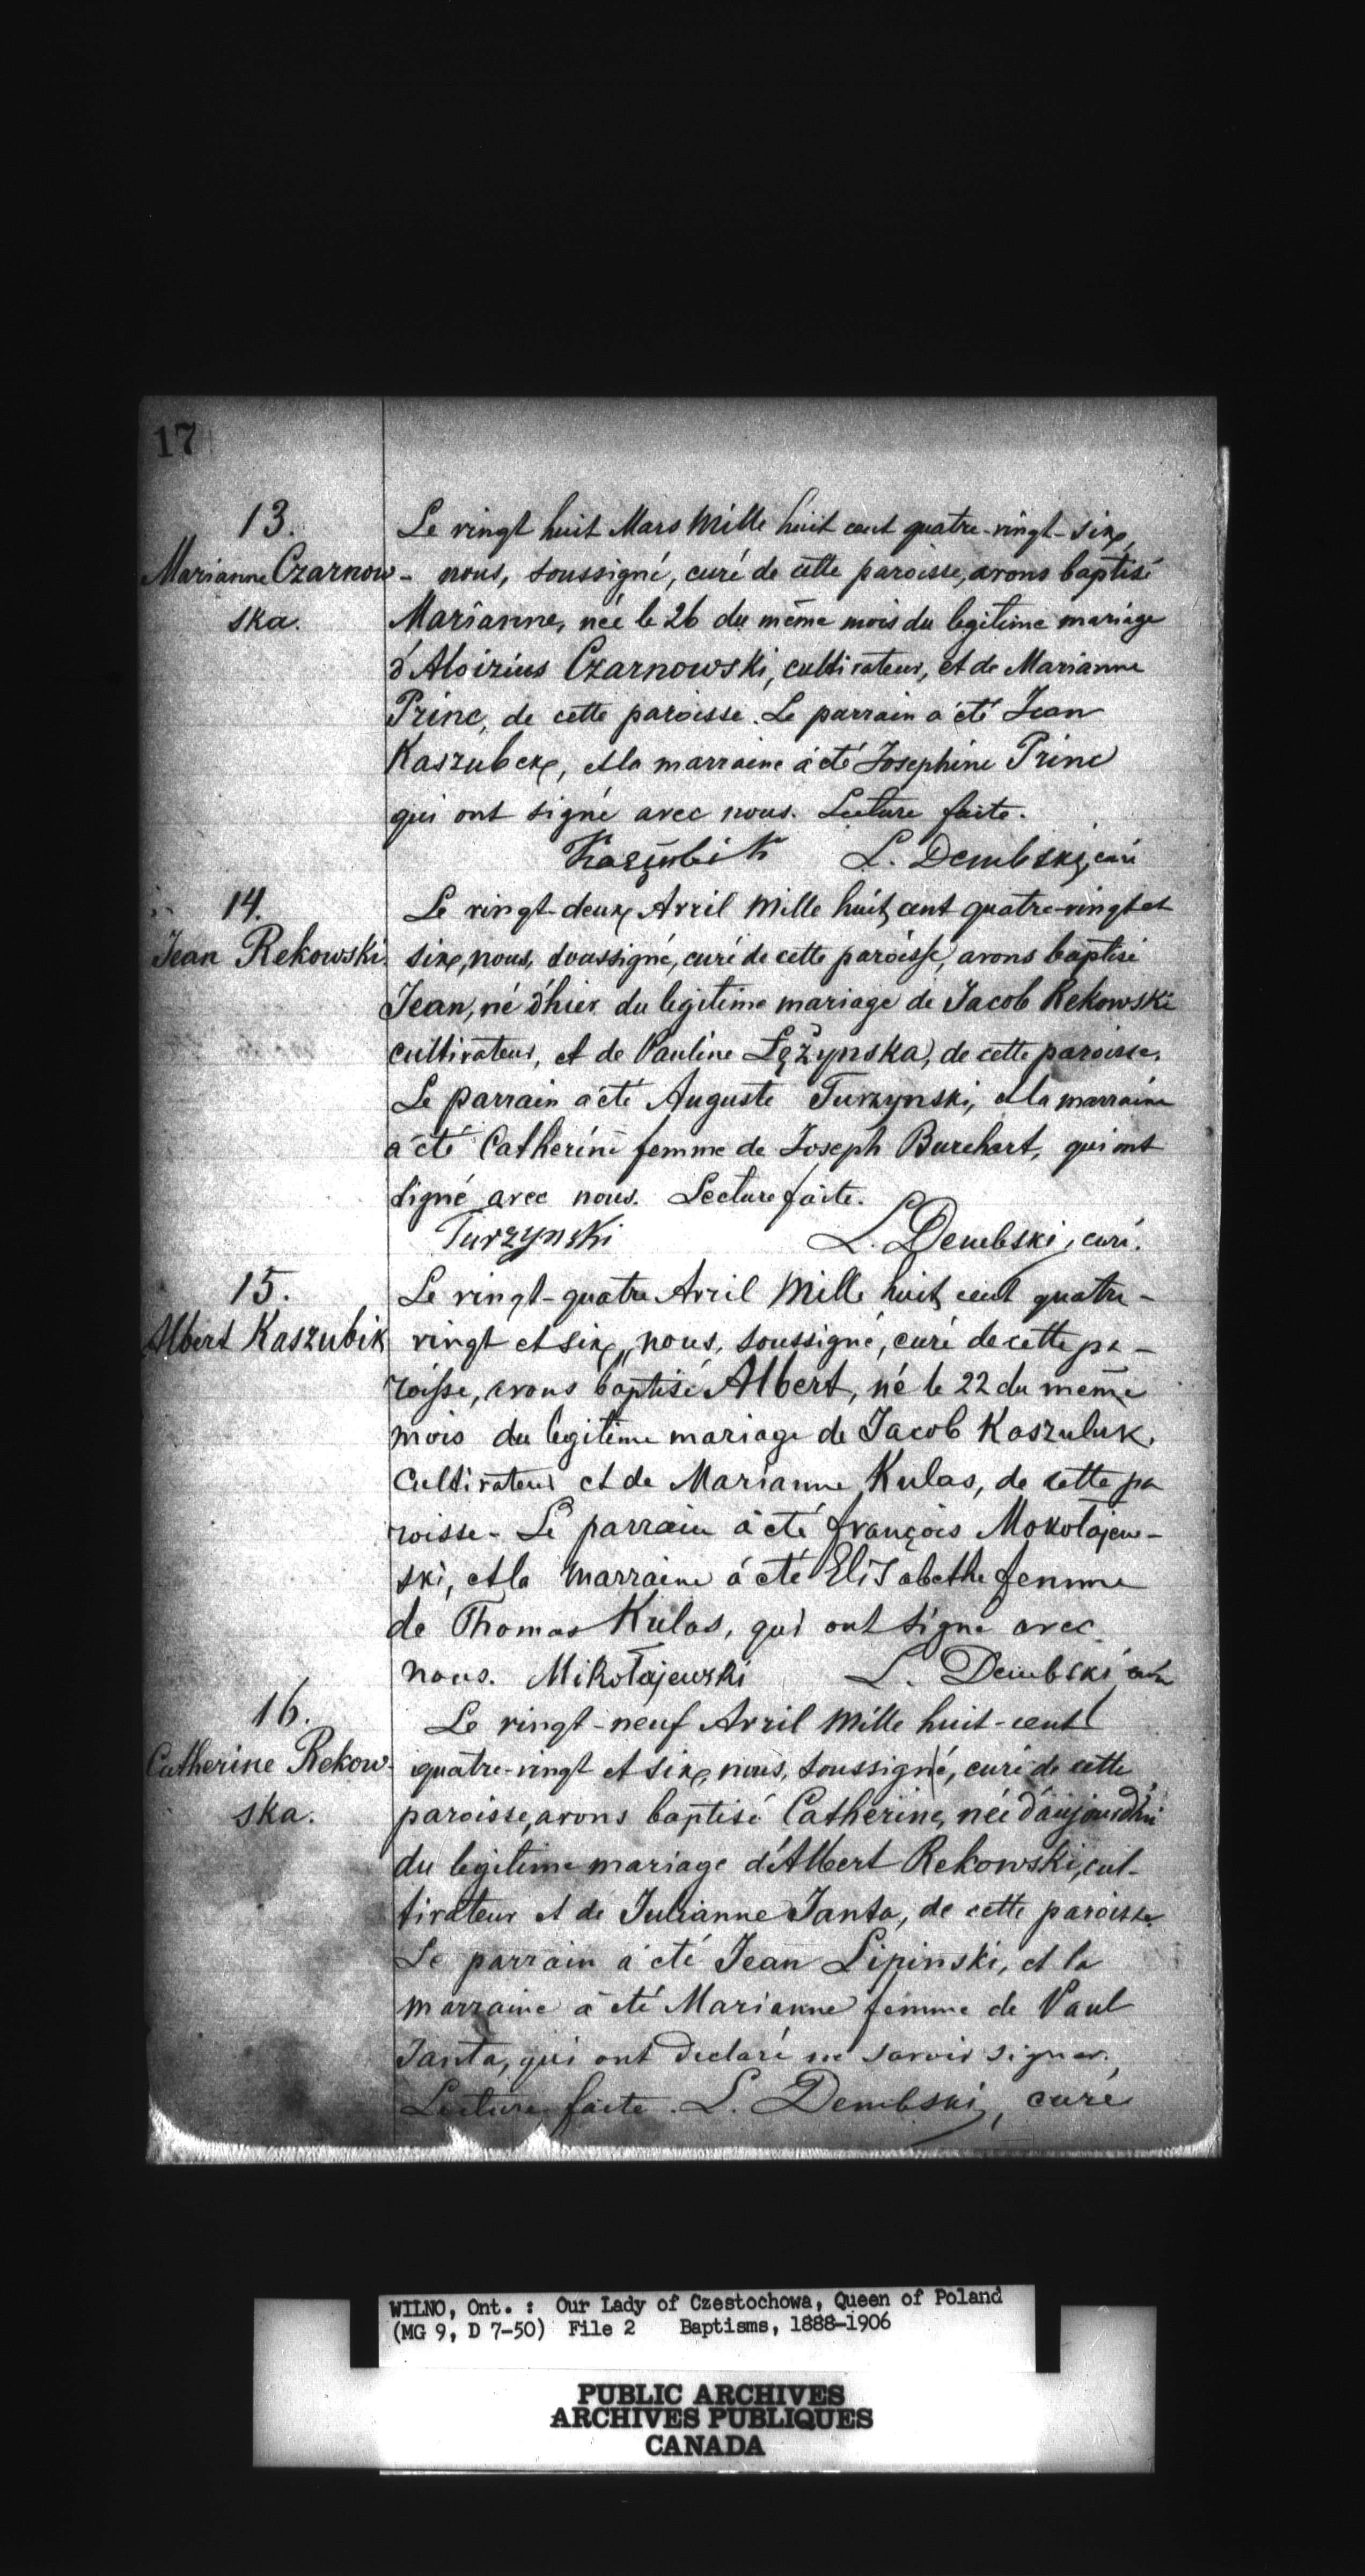 17
13.
Marianne Czarnow-
ska.
Le vingt huit Mars Mille huit cent quatre-vingt-six,
nous, soussigné, curé de cette paroisse, avons baptisé
Marianne, née le 26 du même mois du legitime mariage
d'Aloizius Czarnowski, cultivateur, et de Marianne
Princ, de cette paroisse. Le parrain a été Jean
Kaszubek, et la marraine a été Josephine Princ
qui ont signé avec nous. Lecture faite.
Kaszubik L. Dembski, curé
14.
Jean Rekowski.
Le vingt-deux Avril Mille huit cent quatre-vingt et
six, nous, soussigné, curé de cette paroisse, avons baptisé
Jean, né d'hier du legitime mariage de Jacob Rekowski
cultivateur, et de Pauline Lężynska, de cette paroisse.
Le parrain a été Auguste Turzynski, et la marraine
a été Catherine femme de Joseph Burchart, qui ont
signé avec nous. Lecture faite.
Turzynski L. Dembski, curé.
15.
Albert Kaszubik
Le vingt-quatre Avril Mille huit cent quatre-
vingt et six, nous, soussigné, curé de cette pa-
roisse, avons baptisé Albert, né le 22 du même
mois du legitime mariage de Jacob Kaszubik,
cultivateur et de Marianne Kulas, de cette pa
roisse- Le parrain a été françois Mokołajew-
ski, et la marraine a été Elisabethe femme
de Thomas Kulas, qui ont signé avec
nous. Mikołajewski L. Dembski curé
16.
Catherine Rekow-
ska.
Le vingt-neuf Avril Mille huit-cent
quatre-vingt et six, nous, soussigné, curé de cette
paroisse, avons baptisé Catherine, née d'aujourd'hui
du legitime mariage d'Albert Rekowski, cul-
tivateur et de Julianne Janta, de cette paroisse.
Le parrain a été Jean Lipinski, et la
marraine a été Marianne femme de Paul
Janta, qui ont declaré ne savoir signer.
Lecture faite. L. Dembski, curé
WILNO, Ont. : Our Lady of Czestochowa, Queen of Poland
(MG 9, D 7-50) File 2 Baptisms, 1888-1906
PUBLIC ARCHIVES
ARCHIVES PUBLIQUES
CANADA